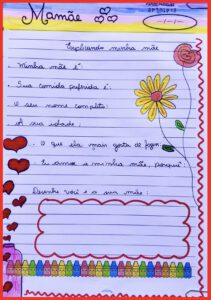 Mamãe
Explicando minha mãe
Minha mãe é:
Sua comida preferida é:
O seu nome completo:
A sua idade:
O que ela mais gosta de fazer:
Eu amo a minha mãe, porque:
Desenhe você e a sua mãe: